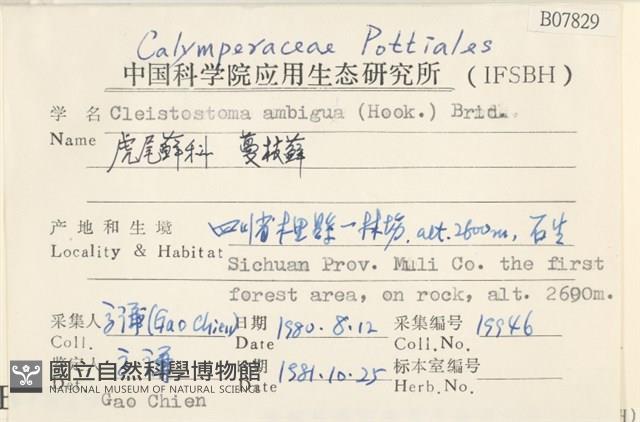 B07829
Calymperaceae Pottiales
中国科学院应用生态研究所 (IFSBH)
学 名 Cleistostoma ambigua (Hook.) Brid.
Name 虎尾蘚科 蔓枝蘚
产 地 和 生 境 四川省木里縣一林场, alt. 2600m, 石生
Locality & Habitat Sichuan Prov. Muli Co. the first
forest area, on rock, alt. 2690m.
采集人 (Gao Chien) 日期 1980.8.12 采集编号 19946
Coll. Date Coll.No.
鉴定人 日期 1981.10.25 标本室编号
Det. Date Herb.No.
國立自然科學博物館
NATIONAL MUSEUM OF NATURAL SCIENCE
Gao Chien